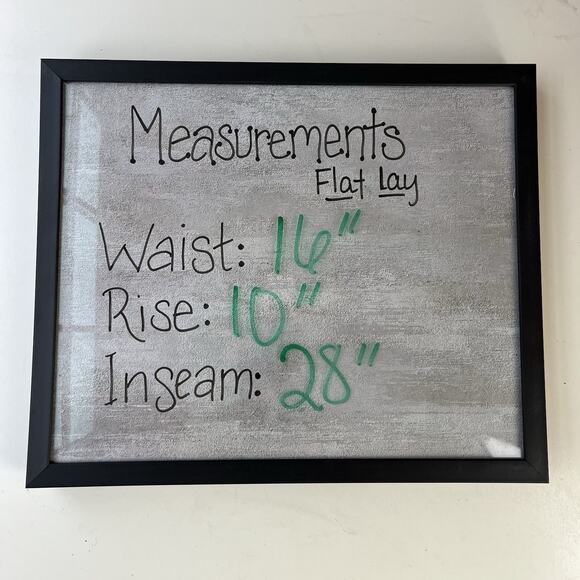 Measurements
Flat Lay
Waist: 16"
Rise: 10"
Inseam: 28"